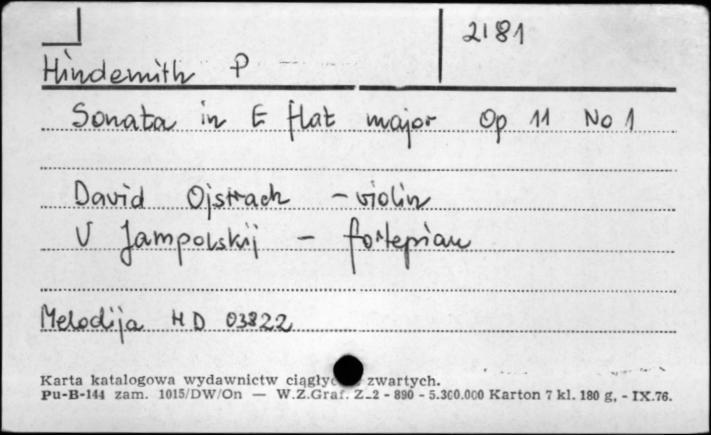 2181
Hindemith P
Sonata in E flat major Op 11 No 1
David Ojstrach - violin
V Jampolskij - fortepian
Melodija HD 03822
Karta katalogowa wydawnictw zwartych.
Pu-B-144 zam. 1015/DW/On — W.Z.Graf. Z-2 - 890 - 5.300.000 Karton 7 kl. 180 g, - IX.76.